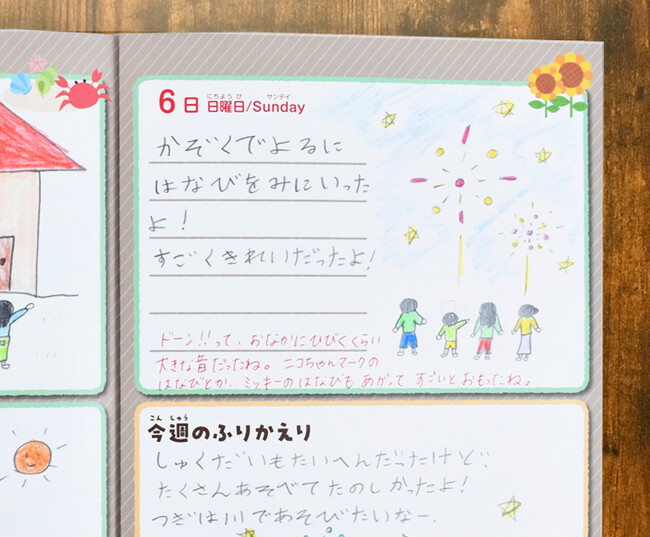 6日 日曜日/Sunday
にちようび サンデイ
かぞくでよるに
はなびをみにいった
よ!
すごくきれいだったよ!
ドーン!!って、おなかにひびくくらい
大きな音だったね。ニコちゃんマークの
はなびとか、ミッキーのはなびも あがって すごいとおもったね。
こん しゅう
今週のふりかえり
しゅくだいもたいへんだったけど、
たくさんあそべてたのしかったよ!
つぎは川であそびたいなー.